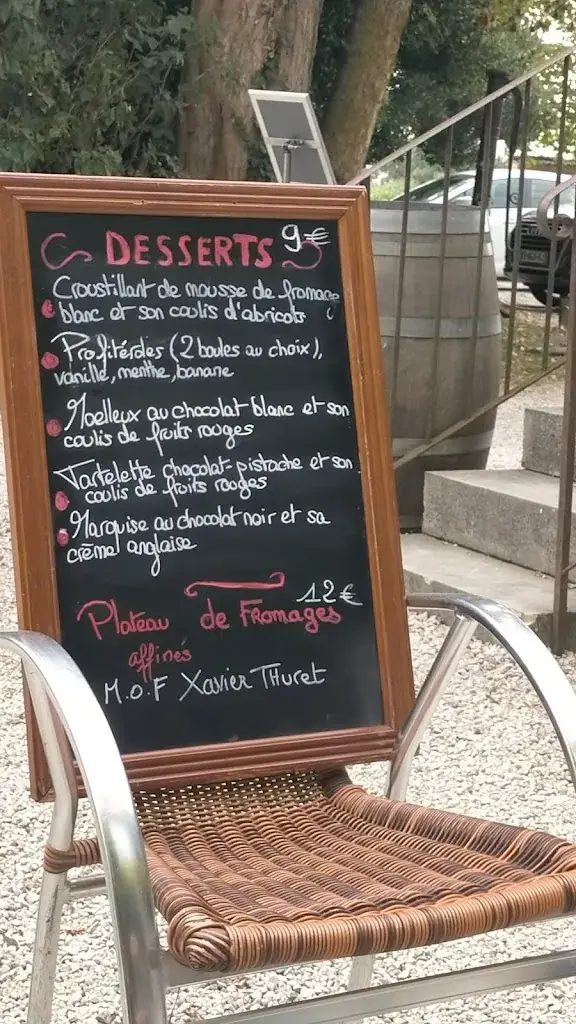 DESSERTS 9€
Croustillant de mousse de fromage
blanc et son coulis d'abricots
Profitéroles (2 boules au choix),
vanille, menthe, banane
Moelleux au chocolat blanc et son
coulis de fruits rouges
Tartelette chocolat-pistache et son
coulis de fruits rouges
Marquise au chocolat noir et sa
crème anglaise
12€
Plateau de Fromages
affinés
M.O.F Xavier THuret